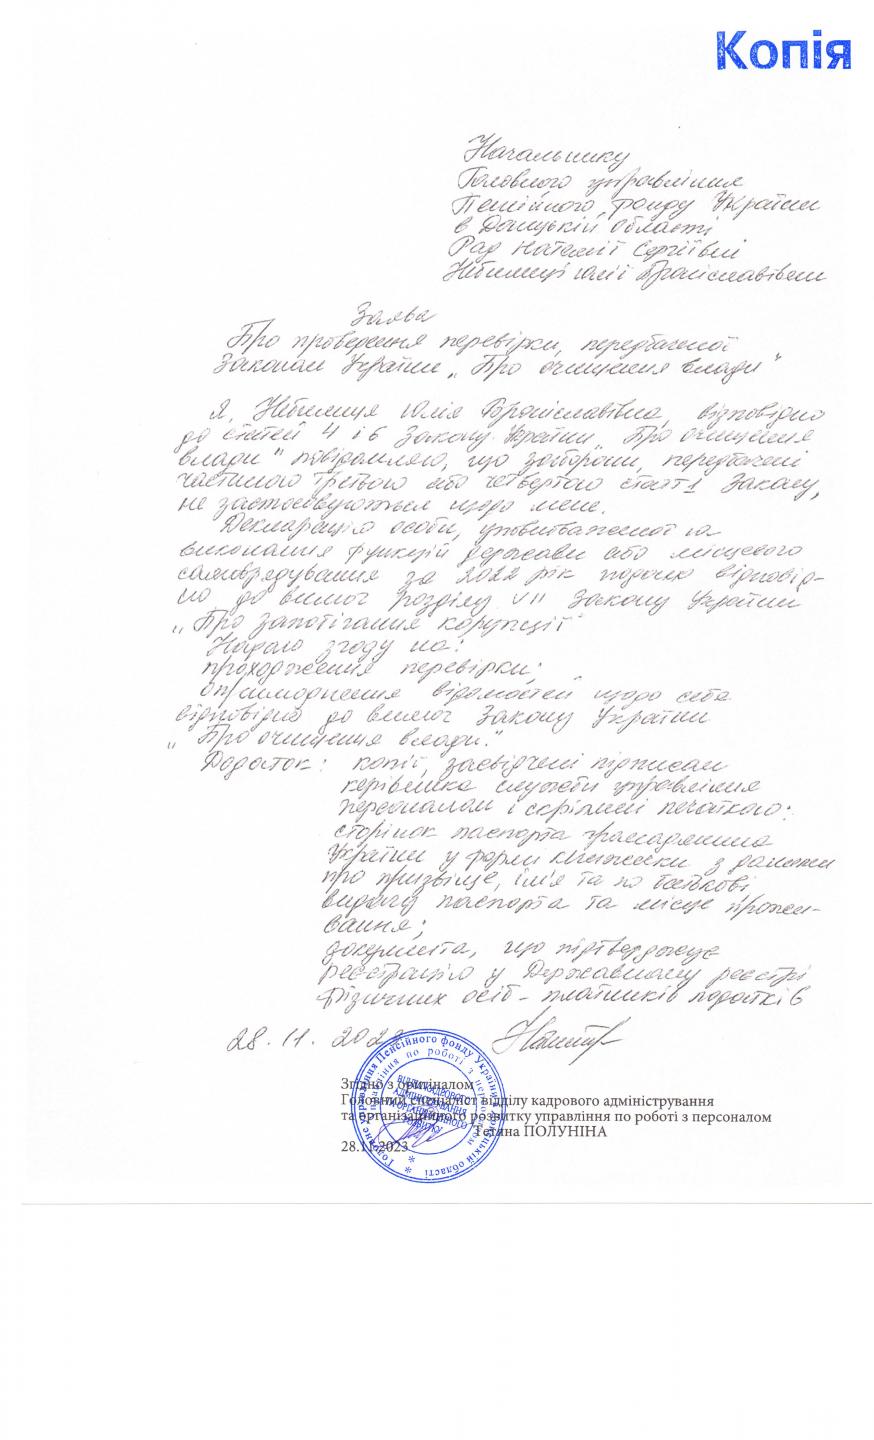 Копія
Начальнику
Головного управління
Пенсійного фонду України
в Донецькій області
Рад Наталії Сергіївні
Юлії Броніславівни
Заява
Про проведення перевірки, передбаченої
Законом України „Про очищення влади"
Я, Юлія Броніславівна, відповідно
до статей 4 і 6 Закону України „Про очищення
влади" повідомляю, що заборони, передбачені
частиною третьою або четвертою статті 1 Закону,
не застосовуються щодо мене.
Декларацію особи, уповноваженої на
виконання функцій держави або місцевого
самоврядування за 2022 рік подано відповід-
но до вимог розділу VII Закону України
„Про запобігання корупції"
Надаю згоду на:
проходження перевірки;
оприлюднення відомостей щодо себе
відповідно до вимог Закону України
„Про очищення влади."
Додаток: копії, засвідчені підписом
керівника служби управління
персоналом і скріплені печаткою:
сторінок паспорта громадянина
України у формі книжечки з даними
про прізвище, ім'я та по батькові,
видачу паспорта та місце прожи-
вання;
документа, що підтверджує
реєстрацію у Державному реєстрі
фізичних осіб - платників податків
28.11.2023
Згідно з оригіналом
Головний спеціаліст відділу кадрового адміністрування
та організаційного розвитку управління по роботі з персоналом
Тетяна ПОЛУНІНА
28.11.2023
Головне управління Пенсійного фонду України в Донецькій області
управління по роботі з персоналом
ВІДДІЛ КАДРОВОГО
АДМІНІСТРУВАННЯ
ТА ОРГАНІЗАЦІЙНОГО
РОЗВИТКУ